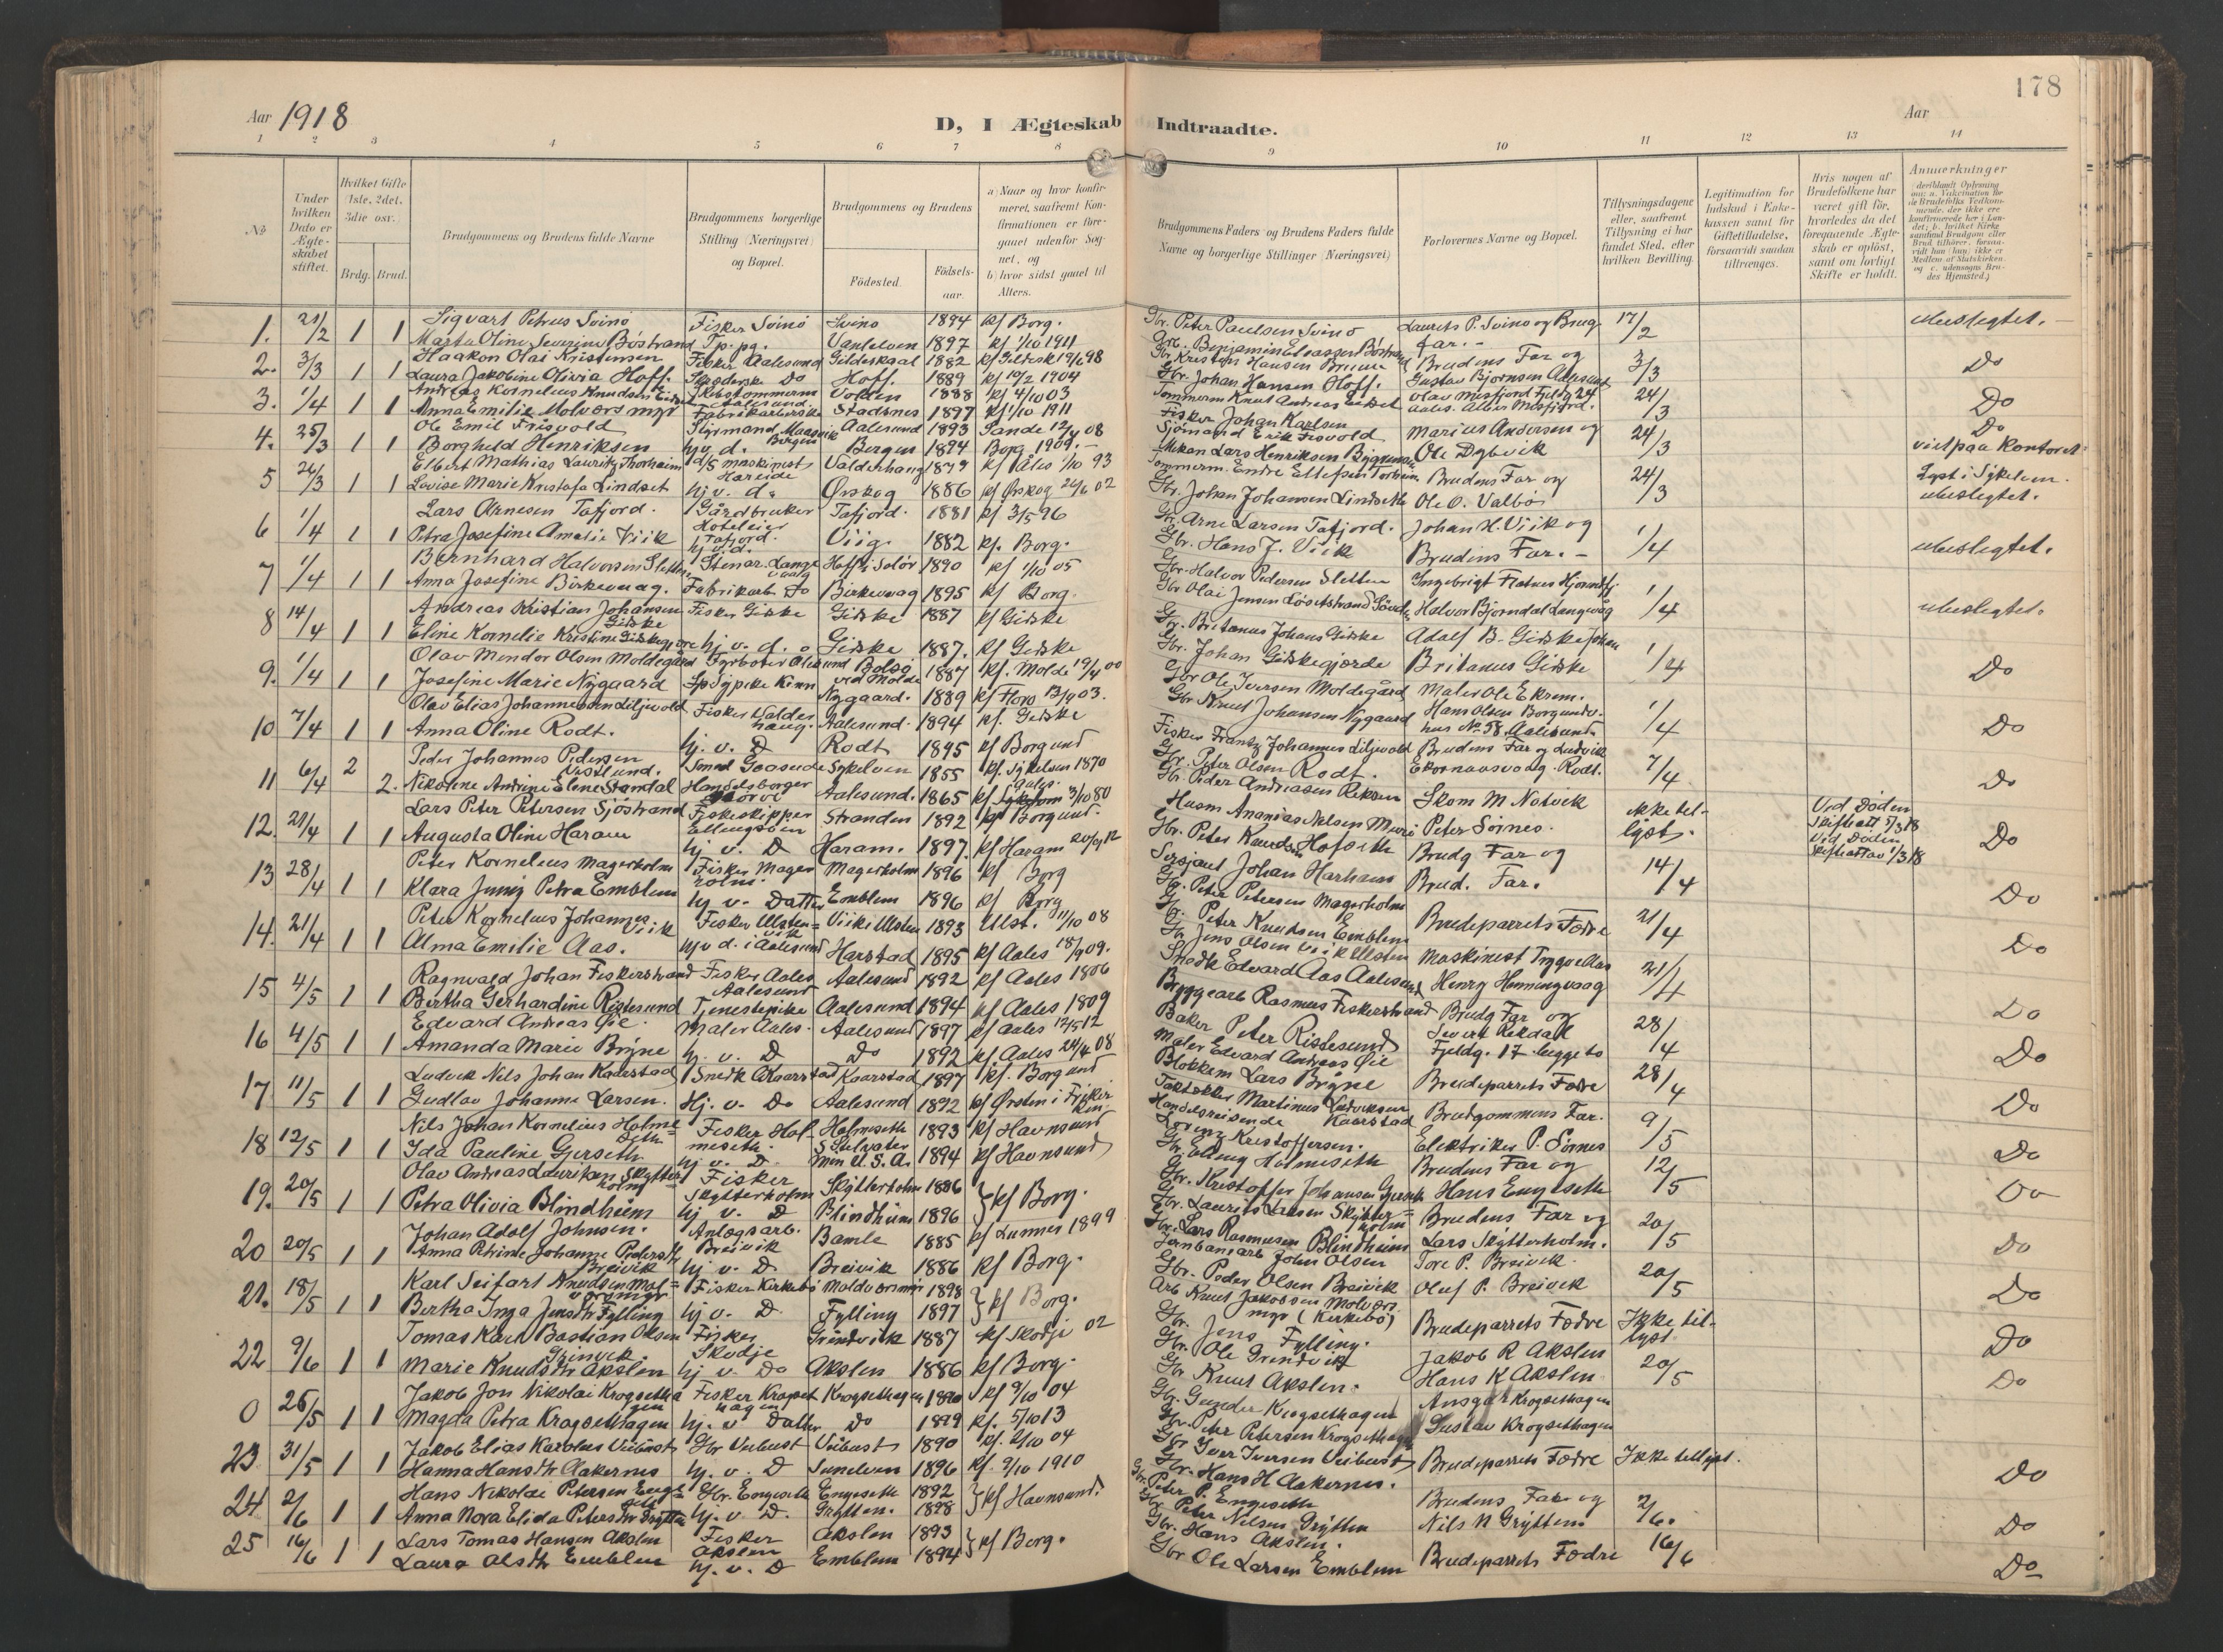 178
Aar 1918
D, I Ægteskab Indtraadte.
Aar
1 2 3 4 5 6 7 8 9 10 11 12 13 14
No
Under hvilken Dato er Ægteskabet stiftet.
Hvilket Gifte (1ste, 2det, 3die osv.)
Brdg. Brud.
Brudgommens og Brudens fulde Navne
Brudgommens borgerlige Stilling (Næringsvei) og Bopæl.
Brudgommens og Brudens
Fødested.
Fødselsaar.
a) Naar og hvor konfirmeret, saafremt Konfirmationen er foregaaet udenfor Sognet, og
b) hvor sidst gaaet til Alters.
Brudgommens Faders og Brudens Faders fulde Navne og borgerlige Stillinger (Næringsvei)
Forlovernes Navne og Bopæl.
Tillysningsdagene eller, saafremt Tillysning ei har fundet Sted, efter hvilken Bevilling.
Legitimation for Indskud i Enkekassen samt for Giftetilladelse, forsaavidt saadan tiltrænges.
Hvis nogen af Brudefolkene har været gift før, hvorledes da det foregaaende Ægteskab er opløst, samt om lovligt Skifte er holdt.
Anmærkninger
1. 21/2 1 1 Sigvart Petrus Svinø Fisker Svinø Svinø 1894 kf Borg. Gbr. Peter Paulsen Svinø Laurits P. Svinø og Brug. 17/2 ubeslegtet.
Marta Oline Severine Böstrand Tp. pg. Vanelven 1897 kf 1/10 1911 Gbr. Benjamin Eliassen Böstrand far.
2. 3/3 1 1 Haakon Olai Kristensen Fisker Aalesund Gildeskaal 1882 kf Gildesk 19/6 98 Gbr Kristen Hansen Brudens Far og 3/3 Do
Laura Jakobine Olivia Hoff. Do Hoff. 1889 kf 10/2 1904 Gbr. Johan Hansen Hoff. Gustav Bjornson Aalesund
3. 1/4 1 1 Andreas Kornelius Knudsen Volden 1888 kf 4/10 03 Tømmerm Knut Andreas Olav Misfjord Fjeldg 24 24/3 Do
Anna Emilie Molværsmyr Fabrikarberske Stadsnes 1897 kf 1/10 1911 Fisker Johan Karlsen Aales. Albin Misfjord.
4. 25/3 1 1 Ole Emil Frisvold Styrmand Aalesund 1893 Sande 12/4 08 Sjømand Erik Frisvold Marius Andersen og 24/3 Do
Borghild Henriksen hj v. d. Bergen Bergen 1894 Borg 1909. Lars Henriksen Ole Dybvik viet paa Kontoret
5 26/3 1 1 Elbert Mathias Lauritz Thorheim d/s maskinist Hareide Valderhaug 1879 kf Ales 1/10 93 Tømmerm. Endre Ellefsen Torheim Brudens Far og 24/3 Lyst i Sykelven
Lovise Marie Kristofa Lindset hj. v. d. Ørskog 1886 kf Ørskog 26/6 02 Gbr. Johan Johansen Lindseth Ole O. Valbø ubeslegtet.
6 1/4 1 1 Lars Arnesen Tafjord. Gårdbruker Hoteleier Tafjord. Tafjord. 1881 kf 3/5 96 Gbr. Arne Larsen Tafjord. Johan H. Viik og 1/4 ubeslegtet.
Petra Josefine Amalie Viik hj v. d. Viig. 1882 kf. Borg. Gbr. Hans J. Viik Brudens Far.
7 1/4 1 1 Bernhard Halvorsen Sletten Stenar. Langevaag Hoff i Solør 1890 kf 1/10 05 Gbr. Halvor Pedersen Sletten Ingebrigt 1/4 ubeslegtet.
Anna Josefine Birkevaag. Fabrikarb Do Birkevaag 1895 kf Borg. Gbr Olai Jensen Halvor Bjorndal Langevåg
8 14/4 1 1 Andreas Kristian Johansen Giske Fisker Giske Giske 1887 kf Giske Gbr. Britanus Johans Giske Adolf B. Giske 1/4 Do
Eline Kornelie Kristine Giskegjerde hj. v. d. Giske 1887. kf Giske Gbr. Johan Giskegjerde Britanus Giske
9. 1/4 1 1 Olav Mendor Olsen Moldegård Fyrbøter Alesund Bolsø ved Molde 1887 kf. Molde 19/4 00 Gbr Ole Iversen Moldegård Maler Ole Ekrem. 1/4 Do
Josefine Marie Nygaard Kinn Nygaard. 1889 kf Floro 13/9 03. Gbr Knut Johansen Nygaard Hans Olsen Borgundv. hus No 58 Aalesund
10 7/4 1 1 Olav Elias Johannessen Liljevold Fisker Valderhaug. Aalesund. 1894 kf. Giske Fisker Frantz Johannes Liljevold Brudens Far og Ludvik 7/4 Do
Anna Oline Rodt. hj. v. D Rodt 1895 kf Borgund Gbr. Peter Olsen Rodt. Ekornaasvaag. Rodt.
11 6/4 2 Peder Johannes Pedersen Vestlund. Sykelven 1855 kf. Sykelven 1870 Gbr. Peder Andreasen Skom M. Natvik ikke til- Ved Døden Skifteatt 5/3 18 Do
2. Nikoline Andrine Eline Standal Handelsborger Aalesund. 1865 kf Aales. 3/10 80 Husm Ananias Nilsen Peter Sørnes. lyst. Ved Døden Skifteatt av 1/3 18
12. 21/4 1 1 Lars Peter Petersen Sjöstrand Fiskeskipper Ellingsöen Stranden 1892 kf Borgund. Gbr. Peter Knudsen Hofseth Brudg Far og 14/4 Do
Augusta Oline Haram hj. v. D Haram. 1897. kf Haram 20/9 12 Sersjant Johan Harham Brud. Far.
13 28/4 1 1 Peter Kornelius Magerholm Fisker Magerholm. Magerholm 1896 kf Borg Gbr. Peter Petersen Magerholm Brudeparrets Fædre 21/4 Do
Klara Jenny Petra Emblem hj v. Datter Emblem 1896 kf Borg Gbr. Peter Knudsen Emblem
14. 21/4 1 1 Peter Kornelius Johannes Viik Fisker Ulstenvik Viik i Ulsten 1893 Ulst. 11/10 08 Gbr Jens Olsen Viik Ulsten Maskinist Trygve Aas 21/4 Do
Alma Emilie Aas. hj v d. i Aalesund Harstad 1895 kf Aales 18/9 09. Snedk Edvard Aas Aalesund Henry Henningvaag
15 4/5 1 1 Ragnvald Johan Fiskerstrand Fisker Aales Aalesund Aalesund 1892 kf Aales 1806 Byggearb Rasmus Fiskerstrand Brudg Far og 28/4 Do
Bertha Gerhardine Ristesund Tjenestepike Aalesund 1894 kf Aales 1809 Baker Peter Ristesund Sevrit Rekdal Fjeldg. 17 begge to
16 4/5 1 1 Edvard Andreas Øie. Maler Aales. Aalesund 1897 kf Aales 12/5 12 Maler Edvard Andreas Øie Brudeparrets Fædre 28/4 Do
Amanda Marie Bryne hj. v. D Do 1892 kf. Aales 24/4 08 Blokkem Lars Bryne
17 11/5 1 1 Ludvik Nils Johan Kaarstad Snedk Kaarstad Kaarstad 1897 kf. Borgund Martinus Ludviksen Kaarstad Brudgommens Far. 9/5 Do
Gudlav Johanne Larsen. Hj. v. Do Aalesund 1892 kf Ørsten i Handelsreisende Lorenz Kristoffersen. Elektriker P. Sørnes
18 12/5 1 1 Nils Johan Kornelius Holmeseth Fisker Holmeseth. Holmeseth 1893 kf Havnsund Gbr. Elling Holmeseth Brudens Far og 12/5 Do
Ida Pauline Gjerseth. hj v. D. Stilvater Min U. S. A. 1894 kf Havnsund Gbr. Kristoffer Johansen Gjerseth Hans Engeseth
19. 20/5 1 1 Olav Andreas Lauritsen Skytterholm Fisker Skytterholm Skytterholm 1886 } kf Borg. Gbr. Laurits Larsen Skytterholm Brudens Far og 20/5 Do
Petra Olivia Blindheim hj v. D Blindheim 1896 Gbr. Lars Rasmusen Blindheim Lars Skytterholm.
20 20/5 1 1 Johan Adolf Johnsen. Anlægsarb. Breivik Bamle 1885 kf Lunner 1899 Jernbanearb John Olsen Tore P. Breivik. 20/5 Do
Anna Johanne Pedersdtr Breivik hj v. D Breivik 1886 kf Borg. Gbr. Peder Olsen Breivik Oluf P. Breivik
21. 18/5 1 1 Karl Seifart Knudsen Molværsmyr Fisker Kirkebö Moldværsmyr 1898 } kf Borg. Arb Knut Jakobsen Molværsmyr (Kirkebö) Brudeparrets Fædre Ikke tillyst. Do
Bertha Inga Jensdtr Fylling hj v. D. Fylling 1897 Gbr. Jens Fylling.
22 9/6 1 1 Tomas Karl Bastian Olsen Grinvik Fisker Skodje Grindvik 1887 kf Skodje 02 Gbr. Ole Grindvik Jakob R Akslen 20/5 Do
Marie Knudsdtr Akslen hj v. Do Akslen 1886 kf Borg. Gbr Knut Akslen. Hans K Akslen
0 26/5 1 1 Jakob Jon Nikolai Krogsethagen Fisker Krogsethagen Krogsethagen 1890 kf 9/10 04 Gbr. Gunder Krogsethagen Ansgar Krogsethagen
Magda Petra Krogsethagen hj. v Datter Do 1899 kf. 5/10 13 Gbr. Peter Petersen Krogsethagen Gustav Krogsethagen
23 31/5 1 1 Jakob Elias Karolus Veibust Gbr Veibust Veibust 1890 kf. 2/10 04 Gbr Iver Iversen Veibust Brudeparrets Fædre Ikke tillyst. Do
Hanna Hansdtr Aakernes hj. v. D Sunelven 1896 kf. 9/10 1910 Gbr. Hans H Aakernes.
24 2/6 1 1 Hans Nikolai Petersen Engeset Gbr. Engeseth Engeseth 1892 } kf Havnsund. Gbr. Peter P. Engeseth Brudens Far og 2/6. Do
Anna Nora Elida Petersdtr Grytten hj. v. D. Grytten. 1898 Gbr Peter Nilsen Grytten Nils N Grytten
25 16/6 1 1 Lars Tomas Hansen Akslen Fisker Akslen Akslen 1893 } kf Borg. Gbr. Hans Akslen. Brudeparrets Fædre 16/6 Do
Laura Olsdtr Emblem hj. v. D Emblem 1894 Gbr Ole Larsen Emblem